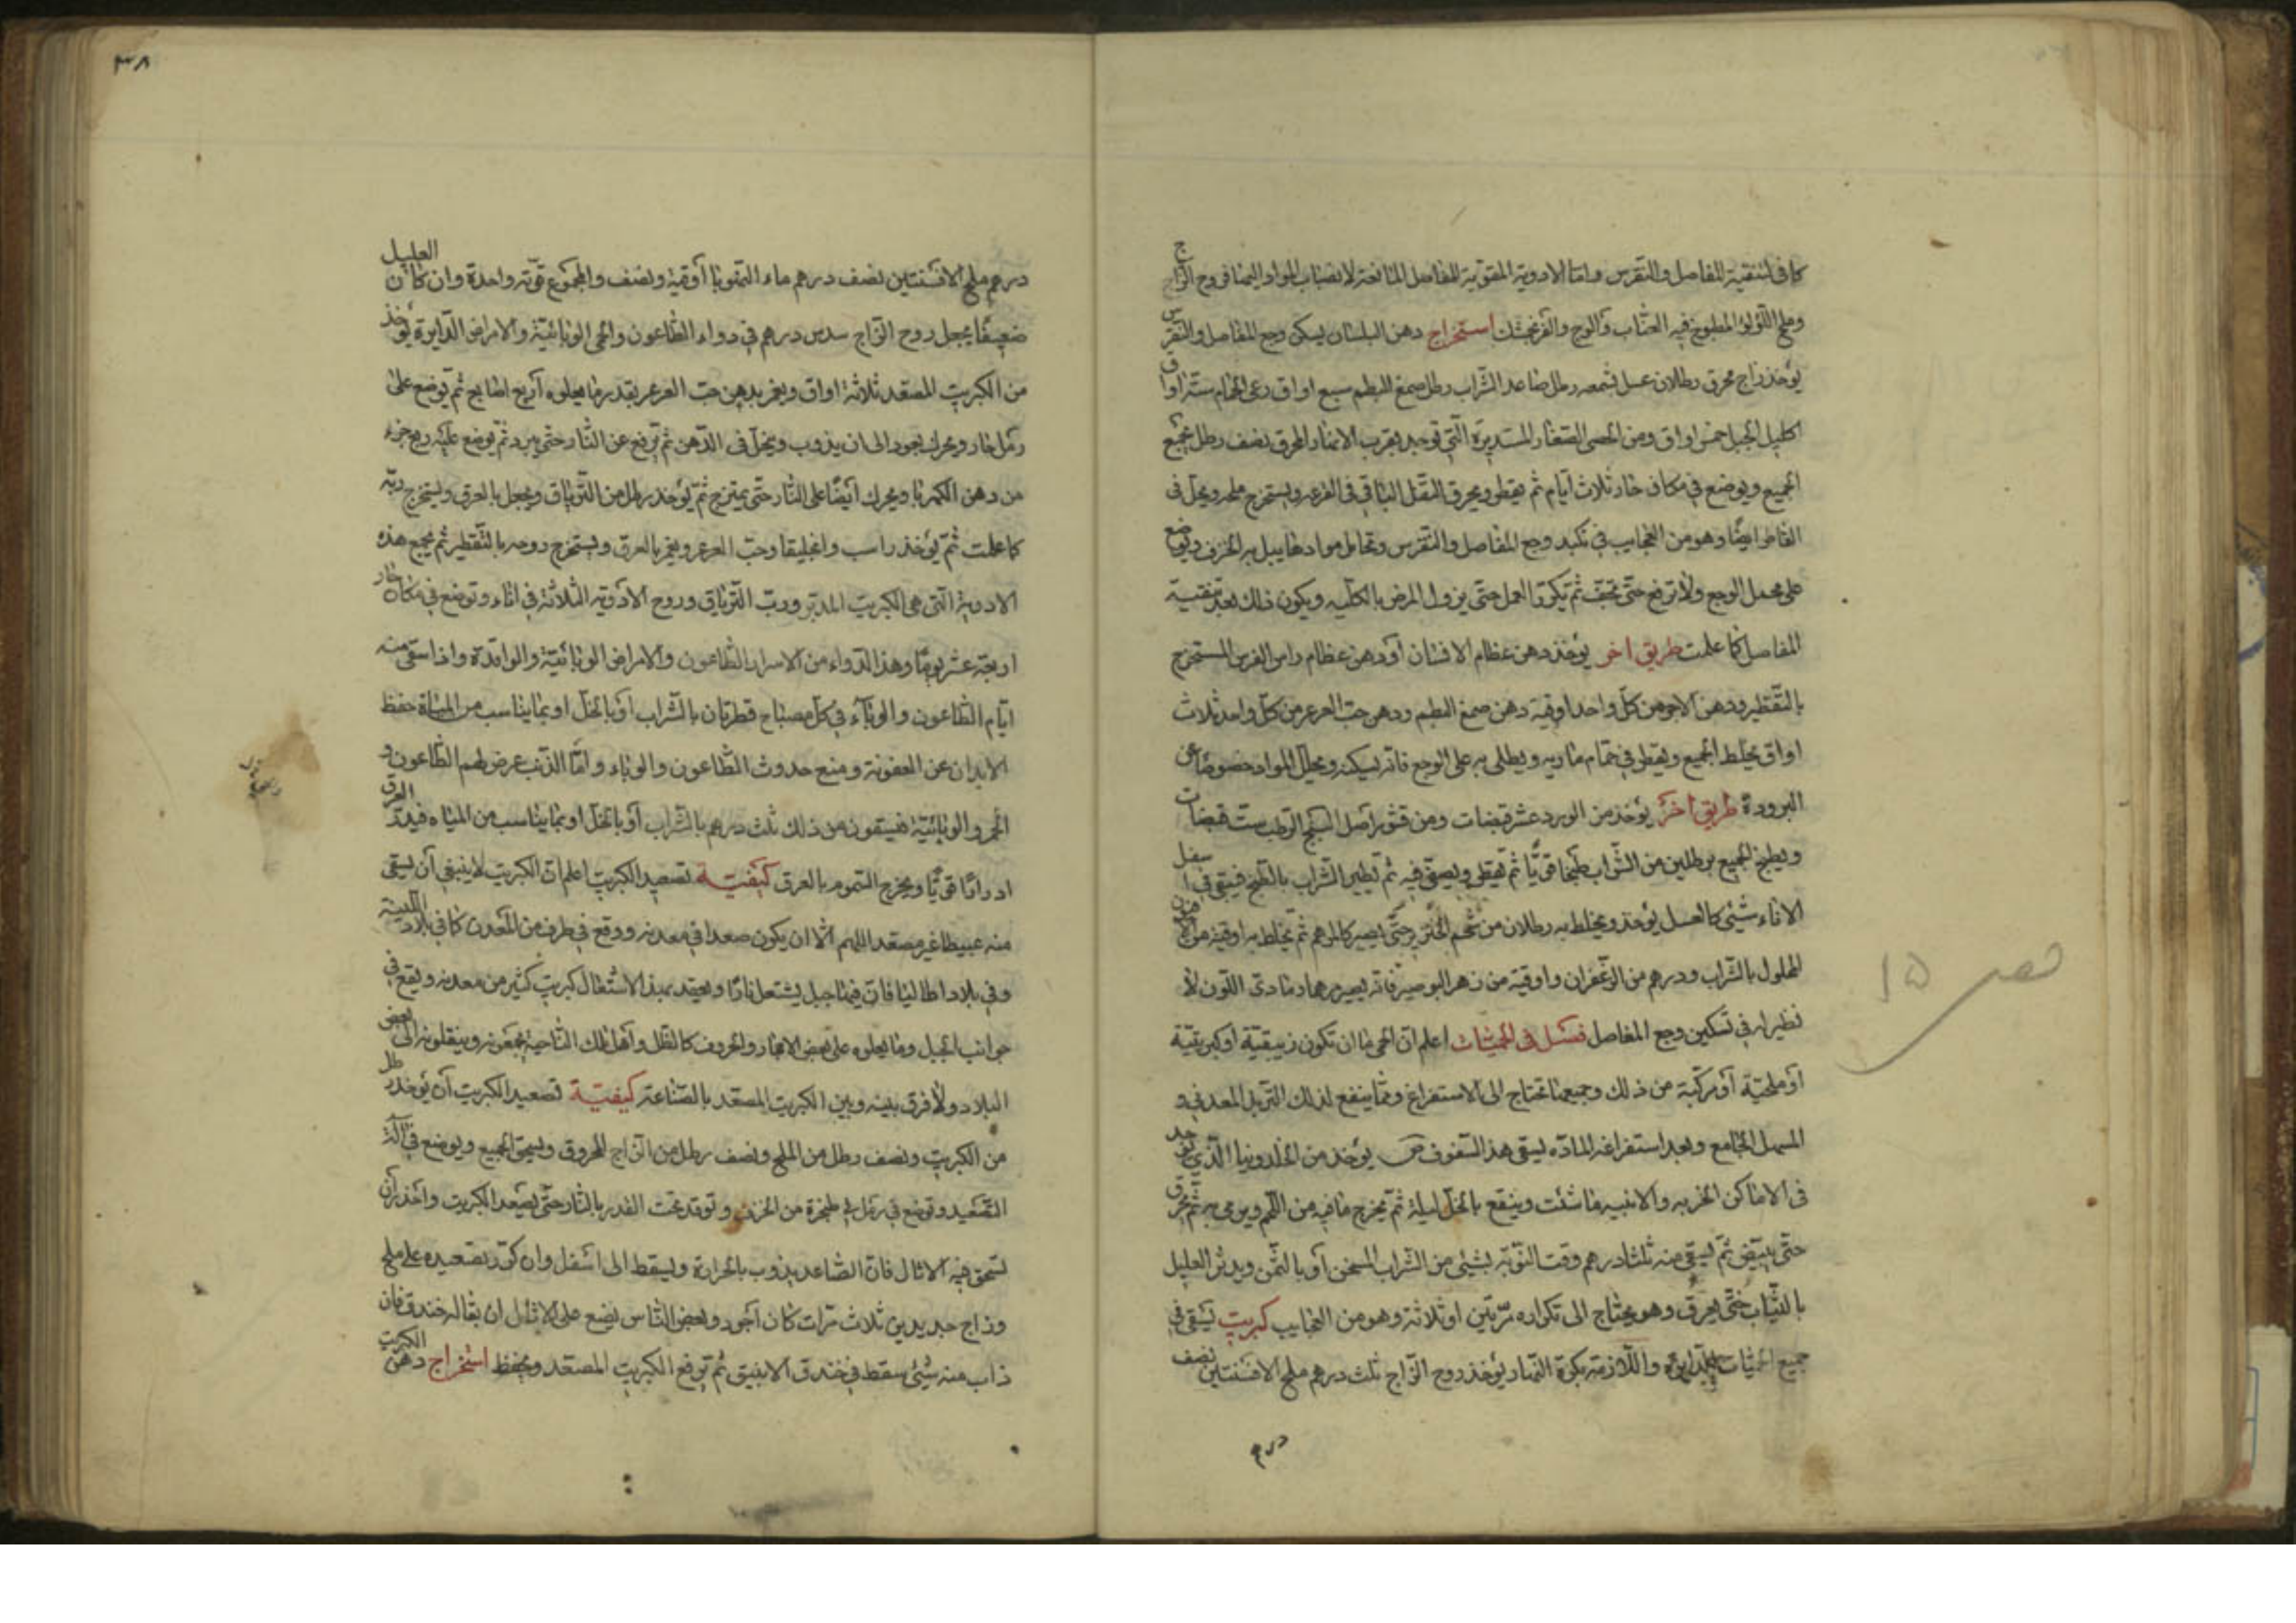 كاف لتنقية المفاصل والنقرس واما الادوية المقوية للمفاصل المانعة لانصباب المواد اليها فروح الزاج
وملح اللؤلؤ المطبوخ فيه العناب والوج والفرنجمشك استخراج دهن البلسان يسكن وجع المفاصل والنقرس
يؤخذ زاج محرق رطلان عسل بشمعه رطل صاعد الشراب رطل صمغ البطم سبع اواق رعى الحمام ستة اواق
اكليل الجبل خمس اواق ومن الحصى الصغار المستديرة التي توجد بقرب الانهار المحرق نصف رطل يجمع
الجميع ويوضع في مكان حار ثلاث ايام ثم يقطر ويحرق الثفل الباقي في القرعه ويستخرج ملحه ويحل في
القاطر ايضا وهو من العجايب في تكيد وجع المفاصل والنقرس وتحليل موادها يبل به الخزف ويوضع
على محل الوجع ولا ترفع حتى تجف ثم تكرر العمل حتى يزول المرض بالكليه ويكون ذلك بعد تنقية
المفاصل كما علمت طريق اخر يؤخذ دهن عظام الانسان او دهن عظام راس الفرس المستخرج
بالتقطير ودهن الاجر من كل واحد اوقية دهن صمغ البطم ودهن حب العرعر من كل واحد ثلاث
اواق يخلط الجميع ويقطر في حمام ماريه ويطلى به على الوجع فانه يسكنه ويحلل المواد خصوصا عن
البرودة طريق اخر يؤخذ من الورد عشر قبضات ومن قشر اصل البنج الرطب ست قبضات
ويطبخ الجميع برطلين من الشراب طبخا قويا ثم يقطر ويصفى فيه ثم تطير الشراب بالطبخ فيبقى في اسفل
الاناء شيئ كالعسل يؤخذ ويخلط به رطلان من شحم الخنزير حتى يصير كالمرهم ثم يخلط به اوقية من الافيون
المحلول بالشراب ودرهم من الزعفران واوقية من زهر البوصير فانه يصير مرهما رمادي اللون لا
نظير له في تسكين وجع المفاصل فصل في الحميات اعلم ان الحمى اما ان تكون زيبقية او كبريتية
او ملحية او مركبة من ذلك وجميعها تحتاج الى الاستفراغ ومما ينفع لذلك التربد المعدني و
المسهل الجامع وبعد استفراغ المادة يسقى هذا السفوف ص يؤخذ من الخلدونيا الذي يوجد
في الاماكن الخربه والابنيه ما شئت وينقع بالخل ليلة ثم يخرج ما فيه من اللحم ويرمى به ثم يحرق
حتى يبيض ثم يسقى منه ثلثا درهم وقت النوبة بشيئ من الشراب المسخن او بالتمن ويدثر العليل
بالثياب حتى يعرق وهو يحتاج الى تكراره مرتين او ثلاثة وهو من العجايب كبريت يسقى في
جميع الحميات الدايرة واللازمة بكرة النهار يؤخذ روح الزاج ثلث درهم ملح الافسنتين نصف
درهم
فصل ١٥
٣٨
درهم ملح الافسنتين نصف درهم ماء اوقية ونصف والمجموع قوته واحدة وان كان العليل
ضعيفا يجعل روح الزاج سدس درهم في دواء الطاعون والحمى الوبائية والامراض الدايرة يؤخذ
من الكبريت المصعد ثلاثة اواق ويغمر بدهن حب العرعر بقدر ما يعلوه اربع اصابع ثم يوضع على
رمل حار ويحرك بعود الى ان يذوب وينحل في الدهن ثم ترفع عن النار حتى يبرد ثم يوضع عليه ربع جزء
من دهن الكهربا ويحرك ايضا على النار حتى يمتزج ثم يؤخذ رطل من الترياق ويجعل بالعرق ويستخرج ربه
كما علمت ثم يؤخذ راسن وانجليقا وحب العرعر ويغمر بالعرق ويستخرج روحه بالتقطير ثم يجمع هذه
الادوية التي هي الكبريت المدبر ورب الترياق وروح الادوية الثلاثة في اناء وتوضع في مكان حار
اربعة عشر يوما وهذا الدواء من الاسرار للطاعون والامراض الوبائية والوافدة واذا سقى منه
ايام الطاعون والوباء في كل مصباح قطرتان بالشراب او بالخل او بما يناسب من المياه حفظ
الابدان عن العفونة ومنع حدوث الطاعون والوباء واما الذين عرض لهم الطاعون و
الحمى والوبائية فيسقون من ذلك ثلث درهم بالشراب او بالخل او بما يناسب من المياه فيدر العرق
ادرارا قويا ويخرج السموم بالعرق كيفية تصعيد الكبريت اعلم ان الكبريت لا ينبغي ان يسقى
منه عبيطا غير مصعد اللهم الا ان يكون صعد في معدنه ووقع في طرف من المعدن كما في بلاد
وفي بلاد اطاليا فان فيها جبل يشتعل نارا ويصعد بهذا الاشتعال كبريت كثير من معدنه ويقع في
جوانب الجبل وما يعلوه على بعض الاحجار والحروف كالقلل واهل تلك الناحية يجمعونه وينقلونه الى بعض
البلاد ولا فرق بينه وبين الكبريت المصعد بالصناعة كيفية تصعيد الكبريت ان يؤخذ رطل
من الكبريت ونصف رطل من الملح ونصف رطل من الزاج المحروق ويسحق الجميع ويوضع في آلة
التصعيد وتوضع في رمل في طنجرة من الخزف وتوقد تحت القدر بالنار حتى يصعد الكبريت واحذر ان
تسخن فيه الاثال فان الصاعد يذوب بالحرارة ويسقط الى اسفل وان كرر تصعيده على ملح
وزاج جديدين ثلاث مرات كان اجود وبعض الناس يضع على الاثال ان يقال له خندق فان
ذاب منه شيئ سقط في خندق الانبيق ثم ترفع الكبريت المصعد ويحفظ استخراج دهن الكبريت